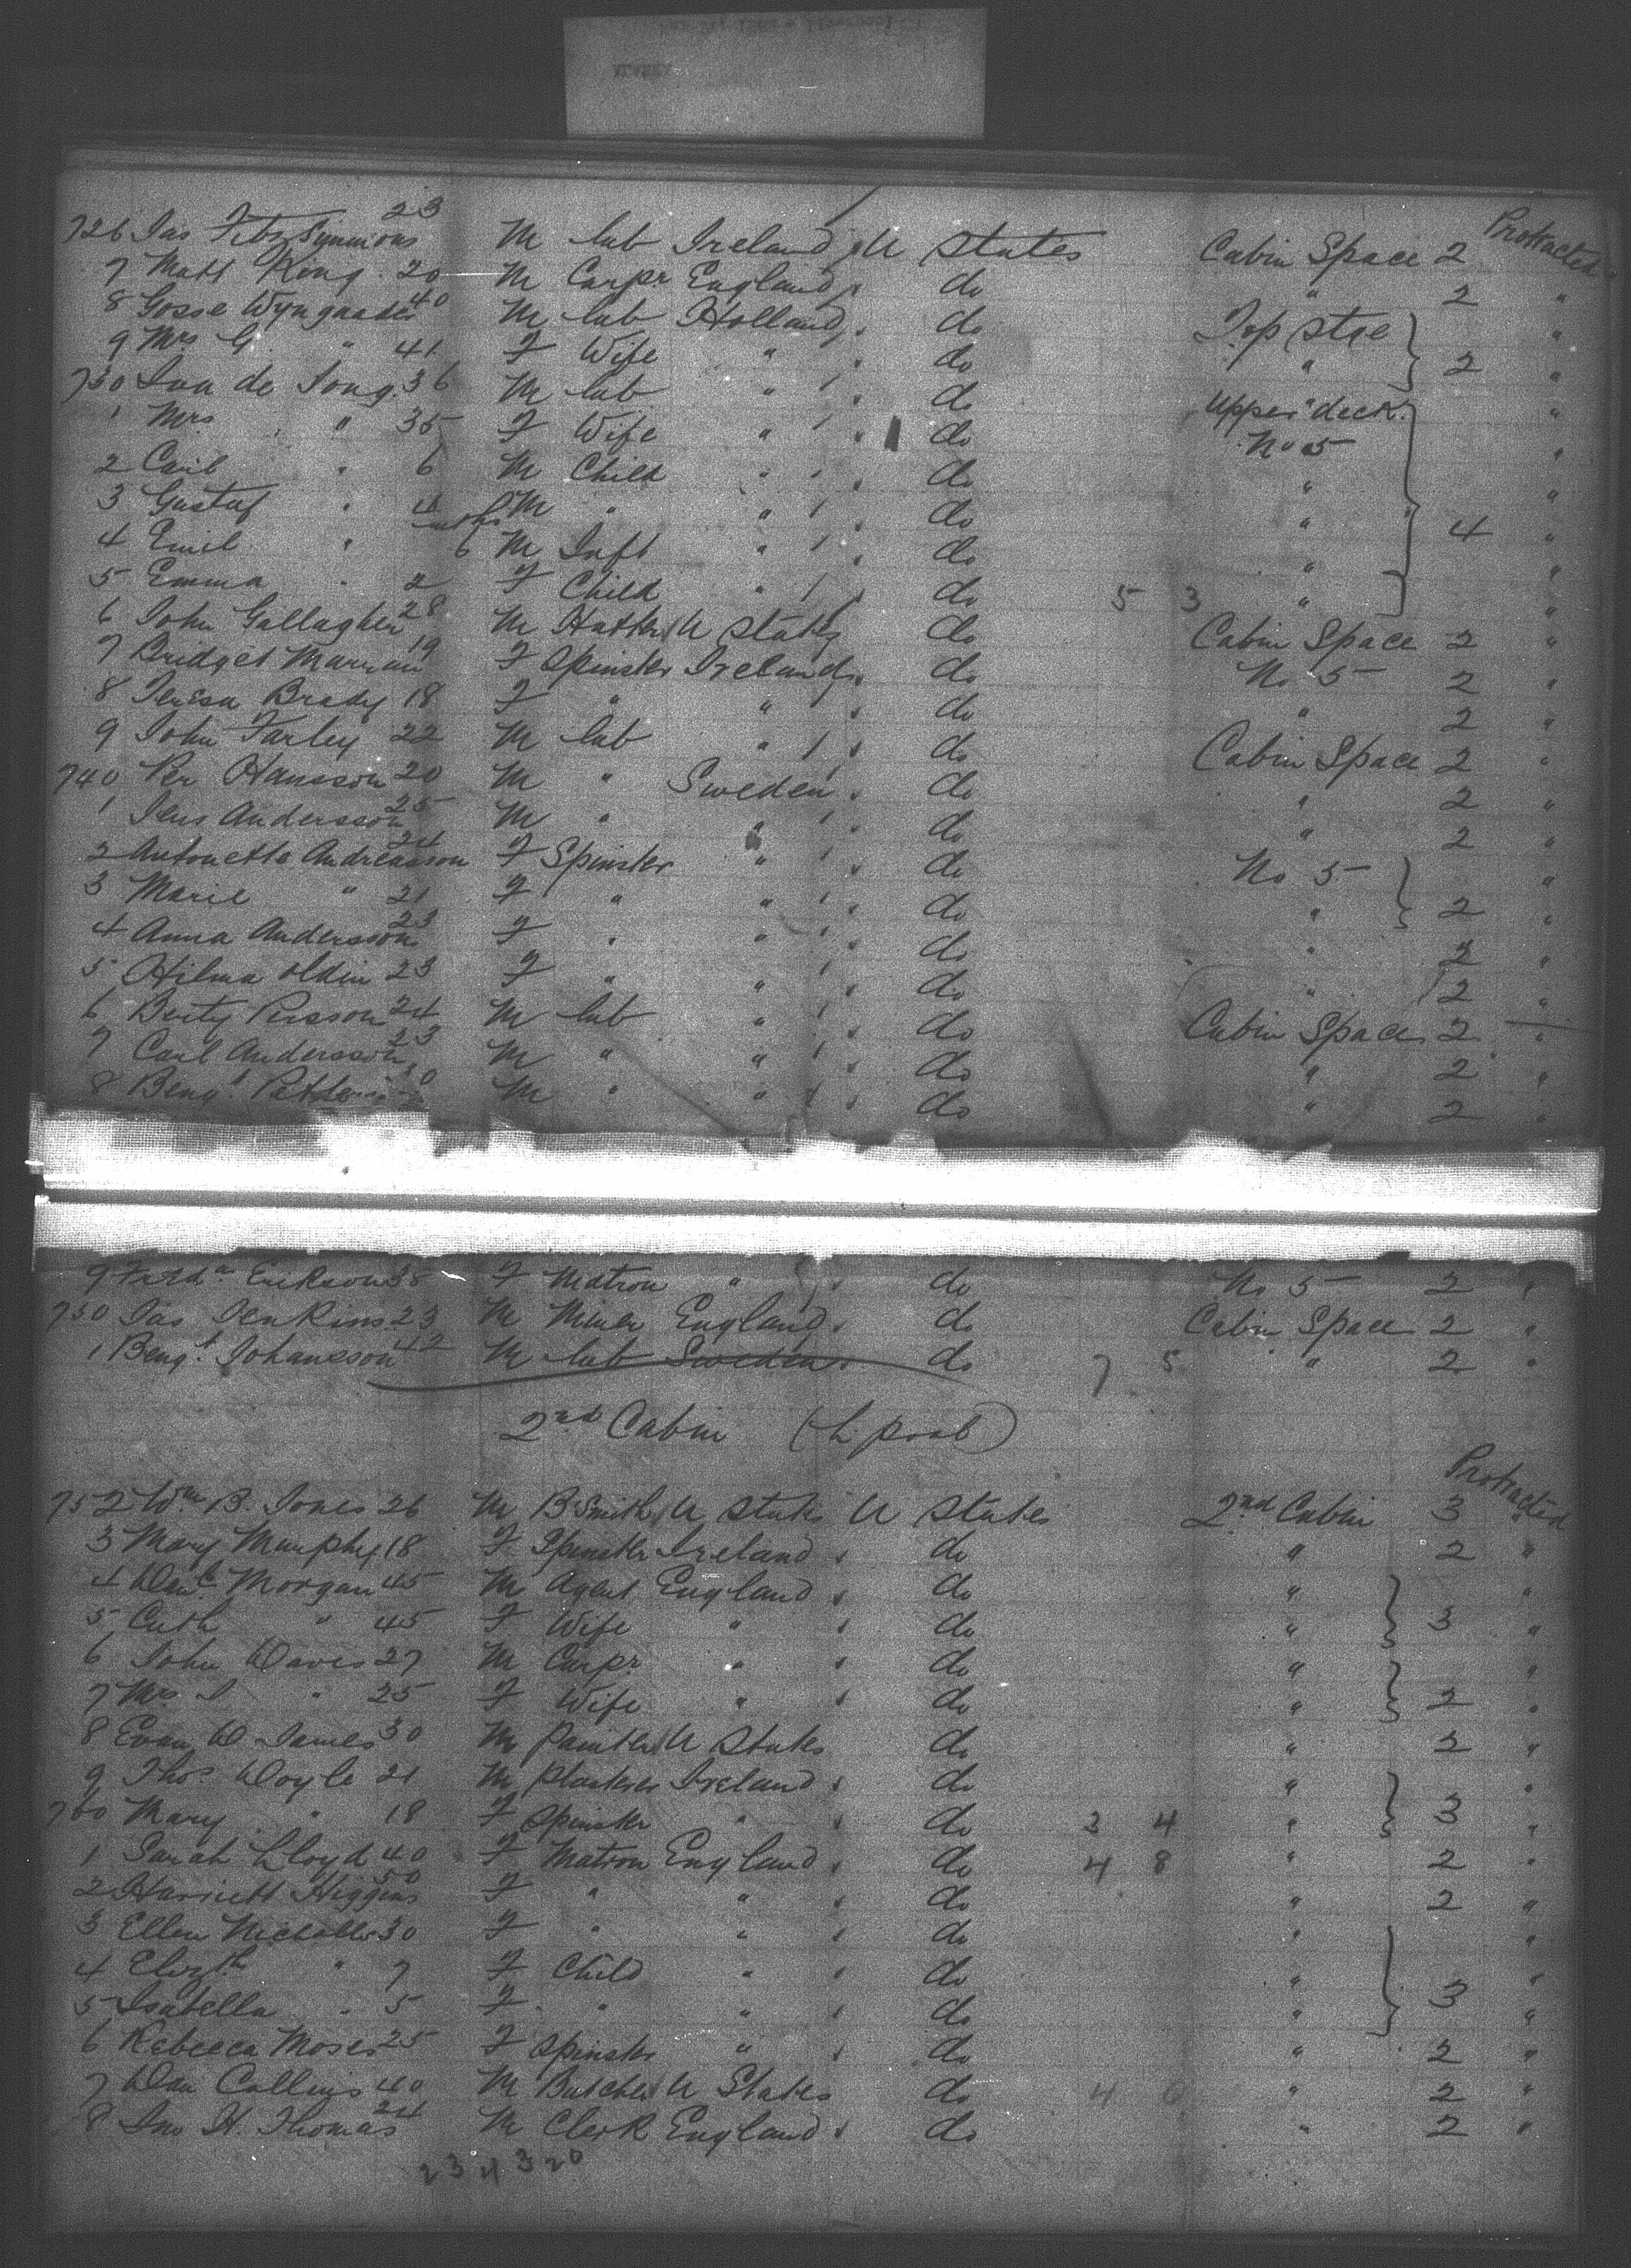 Protracted
726 Jas Fitz Symmons 23 M lab Ireland U States Cabin Space 2
7 Matt King 20 M Carpr England do " 2 "
8 Gosse Wyngaarden 40 M lab Holland do Top stge "
9 Mrs G. " 41 F Wife " do " 2 "
730 Jan de Jong 36 M lab " do Upper deck "
1 Mrs " 35 F Wife " do No 5 "
2 Carl " 6 M Child " do " "
3 Gustaf " 4 M " " do " 4 "
4 Emil " 6 mths M Inft " do " "
5 Emma " 2 F Child " do 5 3 " "
6 John Gallagher 28 M Hatter U States do Cabin Space 2 "
7 Bridget 19 F Spinster Ireland do No 5 2 "
8 Teresa Brady 18 F " " do " 2 "
9 John Farley 22 M lab " do Cabin Space 2 "
740 Per Hansson 20 M " Sweden do " 2 "
1 Jens Andersson 25 M " " do " 2 "
2 Antonette Andreasson 24 F Spinster " do No 5 "
3 Marie " 21 F " " do " 2 "
4 Anna Andersson 23 F " " do " 2 "
5 Hilma Oldin 23 F " " do " 2 "
6 Berty Persson 24 M lab " do Cabin Space 2 "
7 Carl Andersson 23 M " " do " 2 "
8 Bengt M " " do " 2 "
9 Erikson 38 F Matron " do No 5 2 "
750 Jas Jenkins 23 M Miner England do Cabin Space 2 "
1 Bengt Johansson 42 M lab Sweden do 7 5 " 2 "
2nd Cabin (L.pool)
Protracted
752 Wm B. Jones 26 M B Smith U States U States 2nd Cabin 3 "
3 Mary Murphy 18 F Spinster Ireland do " 2 "
4 Danl Morgan 45 M Agent England do " "
5 Cath " 45 F Wife " do " 3 "
6 John Davis 27 M Carpr " do " "
7 Mrs J " 25 F Wife " do " 2 "
8 Evan W James 30 M Painter U States do " 2 "
9 Thos Doyle 21 M Plasterer Ireland do " "
760 Mary " 18 F Spinster " do 3 4 " 3 "
1 Sarah Lloyd 40 F Matron England do 4 8 " 2 "
2 Harriett Higgins 50 F " " do " 2 "
3 Ellen Nicholls 30 F " " do " "
4 Elizth " 7 F Child " do " "
5 Isabella " 5 F " " do " 3 "
6 Rebecca Moses 25 F Spinster " do " 2 "
7 Dan Collins 40 M Butcher U States do 4 0 " 2 "
8 Jno H. Thomas 24 M Clerk England do " 2 "
2 3 4 3 20